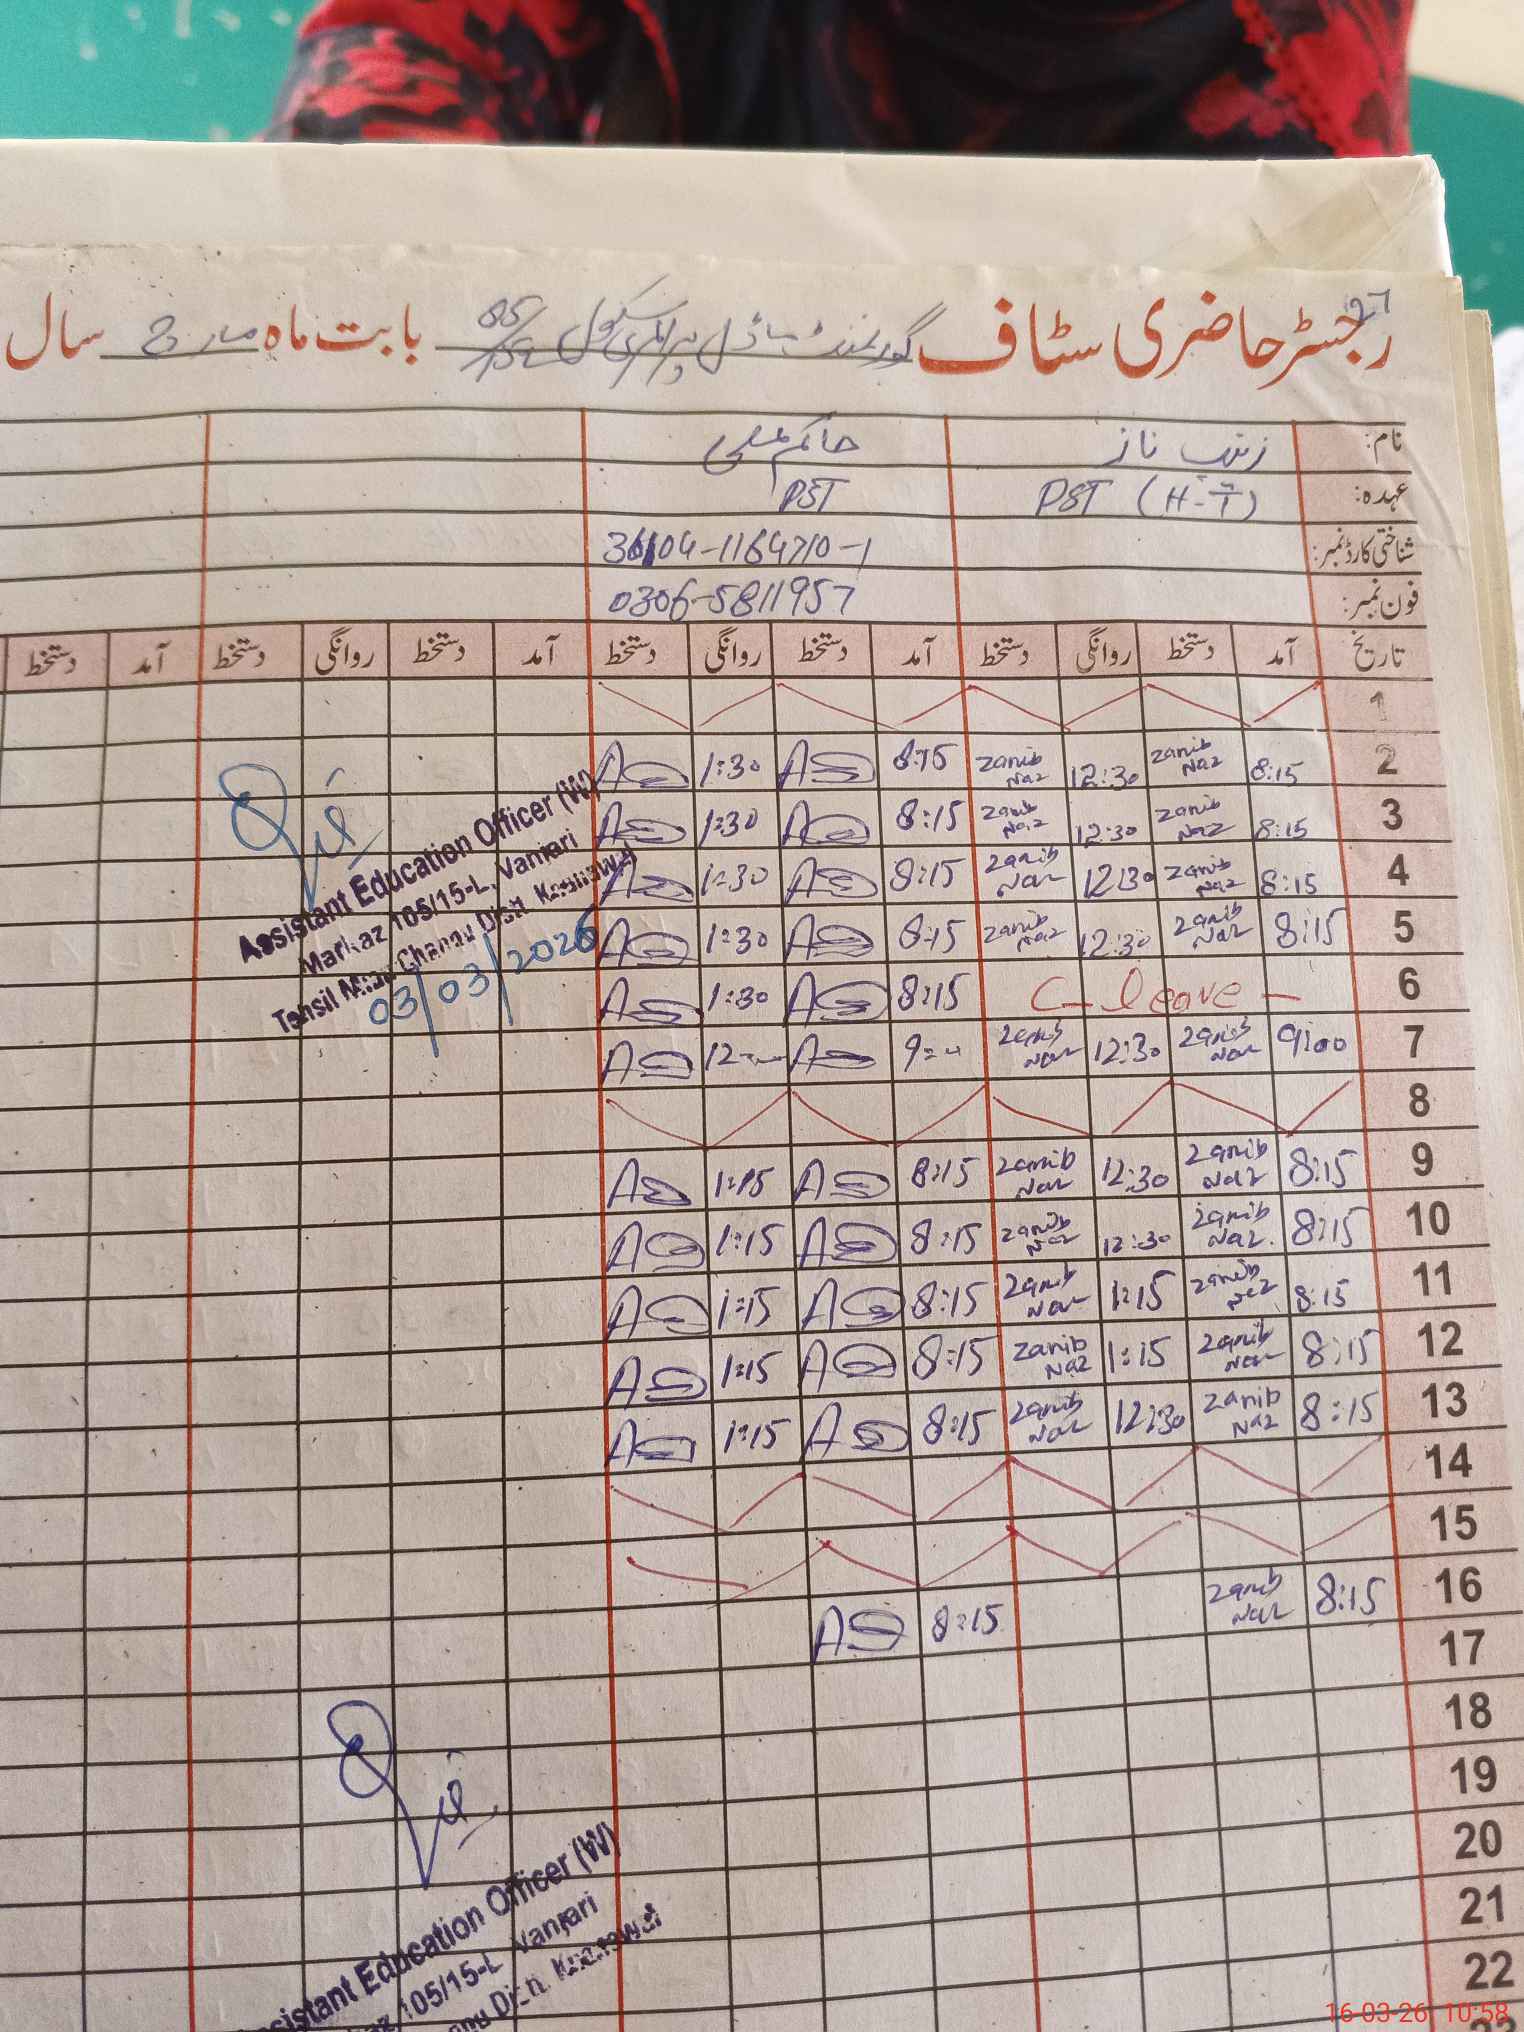 27
رجسٹر حاضری سٹاف گورنمنٹ ماڈل پرائمری سکول بابت ماہ مارچ سال
نام: زینب ناز حاکم علی
عہدہ: PST (H-T) PST
شناختی کارڈ نمبر: 36104-1164710-1
فون نمبر: 0306-5811957
تاریخ آمد دستخط روانگی دستخط آمد دستخط روانگی دستخط آمد دستخط روانگی دستخط آمد دستخط
1
2 8:15 Zanib Naz 12:30 Zanib Naz 8:15 1:30
3 8:15 Zanib Naz 12:30 Zanib Naz 8:15 1:30
4 8:15 Zanib Naz 12:30 Zanib Naz 8:15 1:30
5 8:15 Zanib Naz 12:30 Zanib Naz 8:15 1:30
6 C-leave - 8:15 1:30
7 9:00 Zanib Naz 12:30 Zanib Naz 9:00 12
8
9 8:15 Zanib Naz 12:30 Zanib Naz 8:15 1:15
10 8:15 Zanib Naz 12:30 Zanib Naz 8:15 1:15
11 8:15 Zanib Naz 1:15 Zanib Naz 8:15 1:15
12 8:15 Zanib Naz 1:15 Zanib Naz 8:15 1:15
13 8:15 Zanib Naz 12:30 Zanib Naz 8:15 1:15
14
15
16 8:15 Zanib Naz 8:15
17
18
19
20
21
22
23
Assistant Education Officer (W)
Markaz 105/15-L, Vanjari
Tehsil Mian Channu Distt. Khanewal
03/03/2026
Assistant Education Officer (W)
105/15-L Vanjari
Khanewal
16-03-26, 10:58